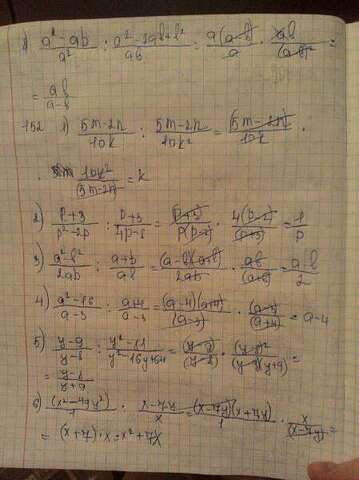 1) (a² - ab)/a² : (a² - 2ab + b²)/ab = a(a-b)/a · ab/(a-b)² =
= ab/a-b
152 1) (5m-2n)/10k : (5m-2n)/10k² = (5m-2n)/10k ·
· 10k²/(5m-2n) = k
2) (p+3)/(p²-2p) : (p+3)/(4p-8) = (p+3)/p(p-2) · 4(p-2)/(p+3) = 4/p
3) (a²-b²)/2ab : (a+b)/ab = (a-b)(a+b)/2ab · ab/(a+b) = (a-b)/2
4) (a²-16)/(a-3) : (a+4)/(a-3) = (a-4)(a+4)/(a-3) · (a-3)/(a+4) = a-4
5) (y-9)/(y-8) : (y²-81)/(y²-16y+64) = (y-9)/(y-8) · (y-8)²/(y-9)(y+9) =
= (y-8)/(y+9)
6) (x²-49y²)/1 : (x-7y)/x = (x-7y)(x+7y)/1 · x/(x-7y) =
= (x+7)·x = x²+7x